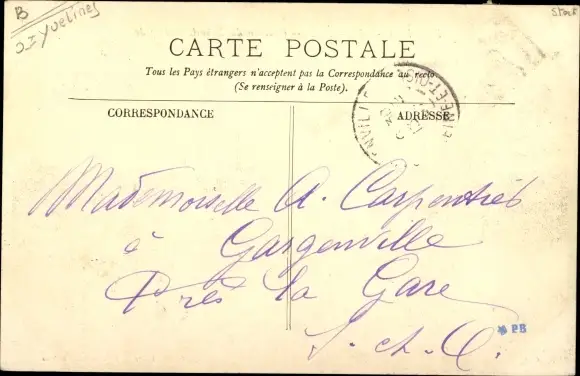 B
Yvelines
Stock
CARTE POSTALE
Tous les Pays étrangers n'acceptent pas la Correspondance au recto
(Se renseigner à la Poste).
CORRESPONDANCE
ADRESSE
INE-ET-OISE
Mademoiselle A. Carpentiés
à Gargenville
Près la Gare
S. ch. O.
PB